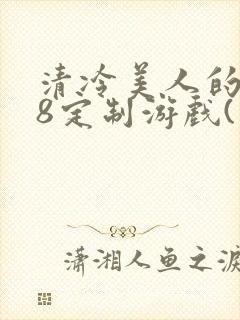 清冷美人的
8定制游戏(
潇湘人鱼之泪